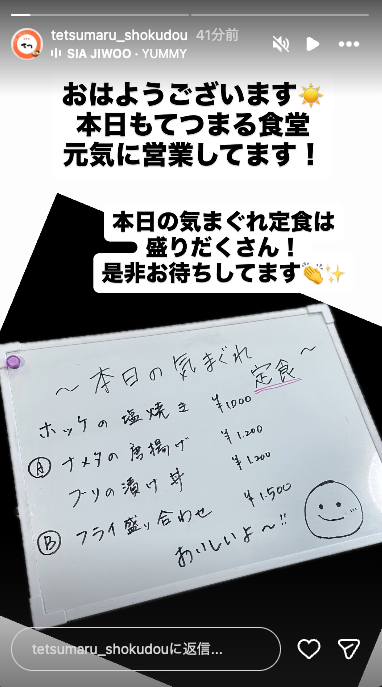 tetsumaru_shokudou 41分前
SIA JIWOO・YUMMY
おはようございます☀️
本日もてつまる食堂
元気に営業してます！
本日の気まぐれ定食は
盛りだくさん！
是非お待ちしてます👏✨
～本日の気まぐれ定食～
ホッケの塩焼き ¥1000
Ⓐ ナメタの唐揚げ ¥1.200
ブリの漬け丼 ¥1.200
Ⓑ フライ盛り合わせ ¥1.500
おいしいよ～!!
tetsumaru_shokudouに返信...